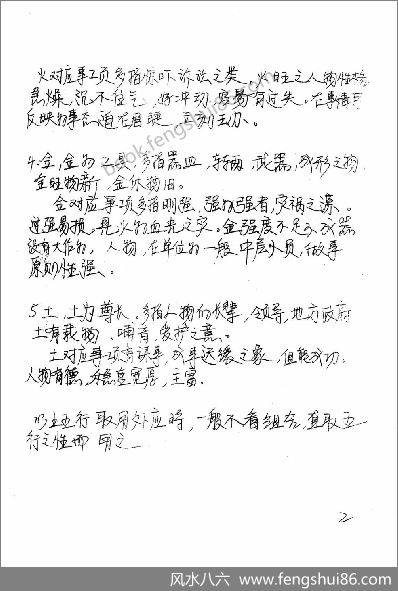 火对应事项多指惊吓诉讼之类。火旺之人物性格
急燥,沉不住气,好冲动,容易有过失。在事情
反映的事态通在眼睫,立刻主办。
4.金,金为工具,多指器皿,车辆,武器,成形之物
金旺物新,金休物旧。
金对应事项多指刚强,强为强者,灾祸之源。
过强易损,是以为血光之灾。金强度不足之武器
没有大作为。人物,在单位为一般中层人员,做事
原则性强。
5.土,土为尊长,多指人物的长辈,领导,地方政府
土有载物,哺育,爱护之意。
土对应事项有误事,或平迟缓之象,但能成功。
人物有德,稳重宽厚,主富。
以上五行取用外应时,一般不看组合,直取五
行之性而用之
2
book.fengshui86.com
风水八六 www.fengshui86.com